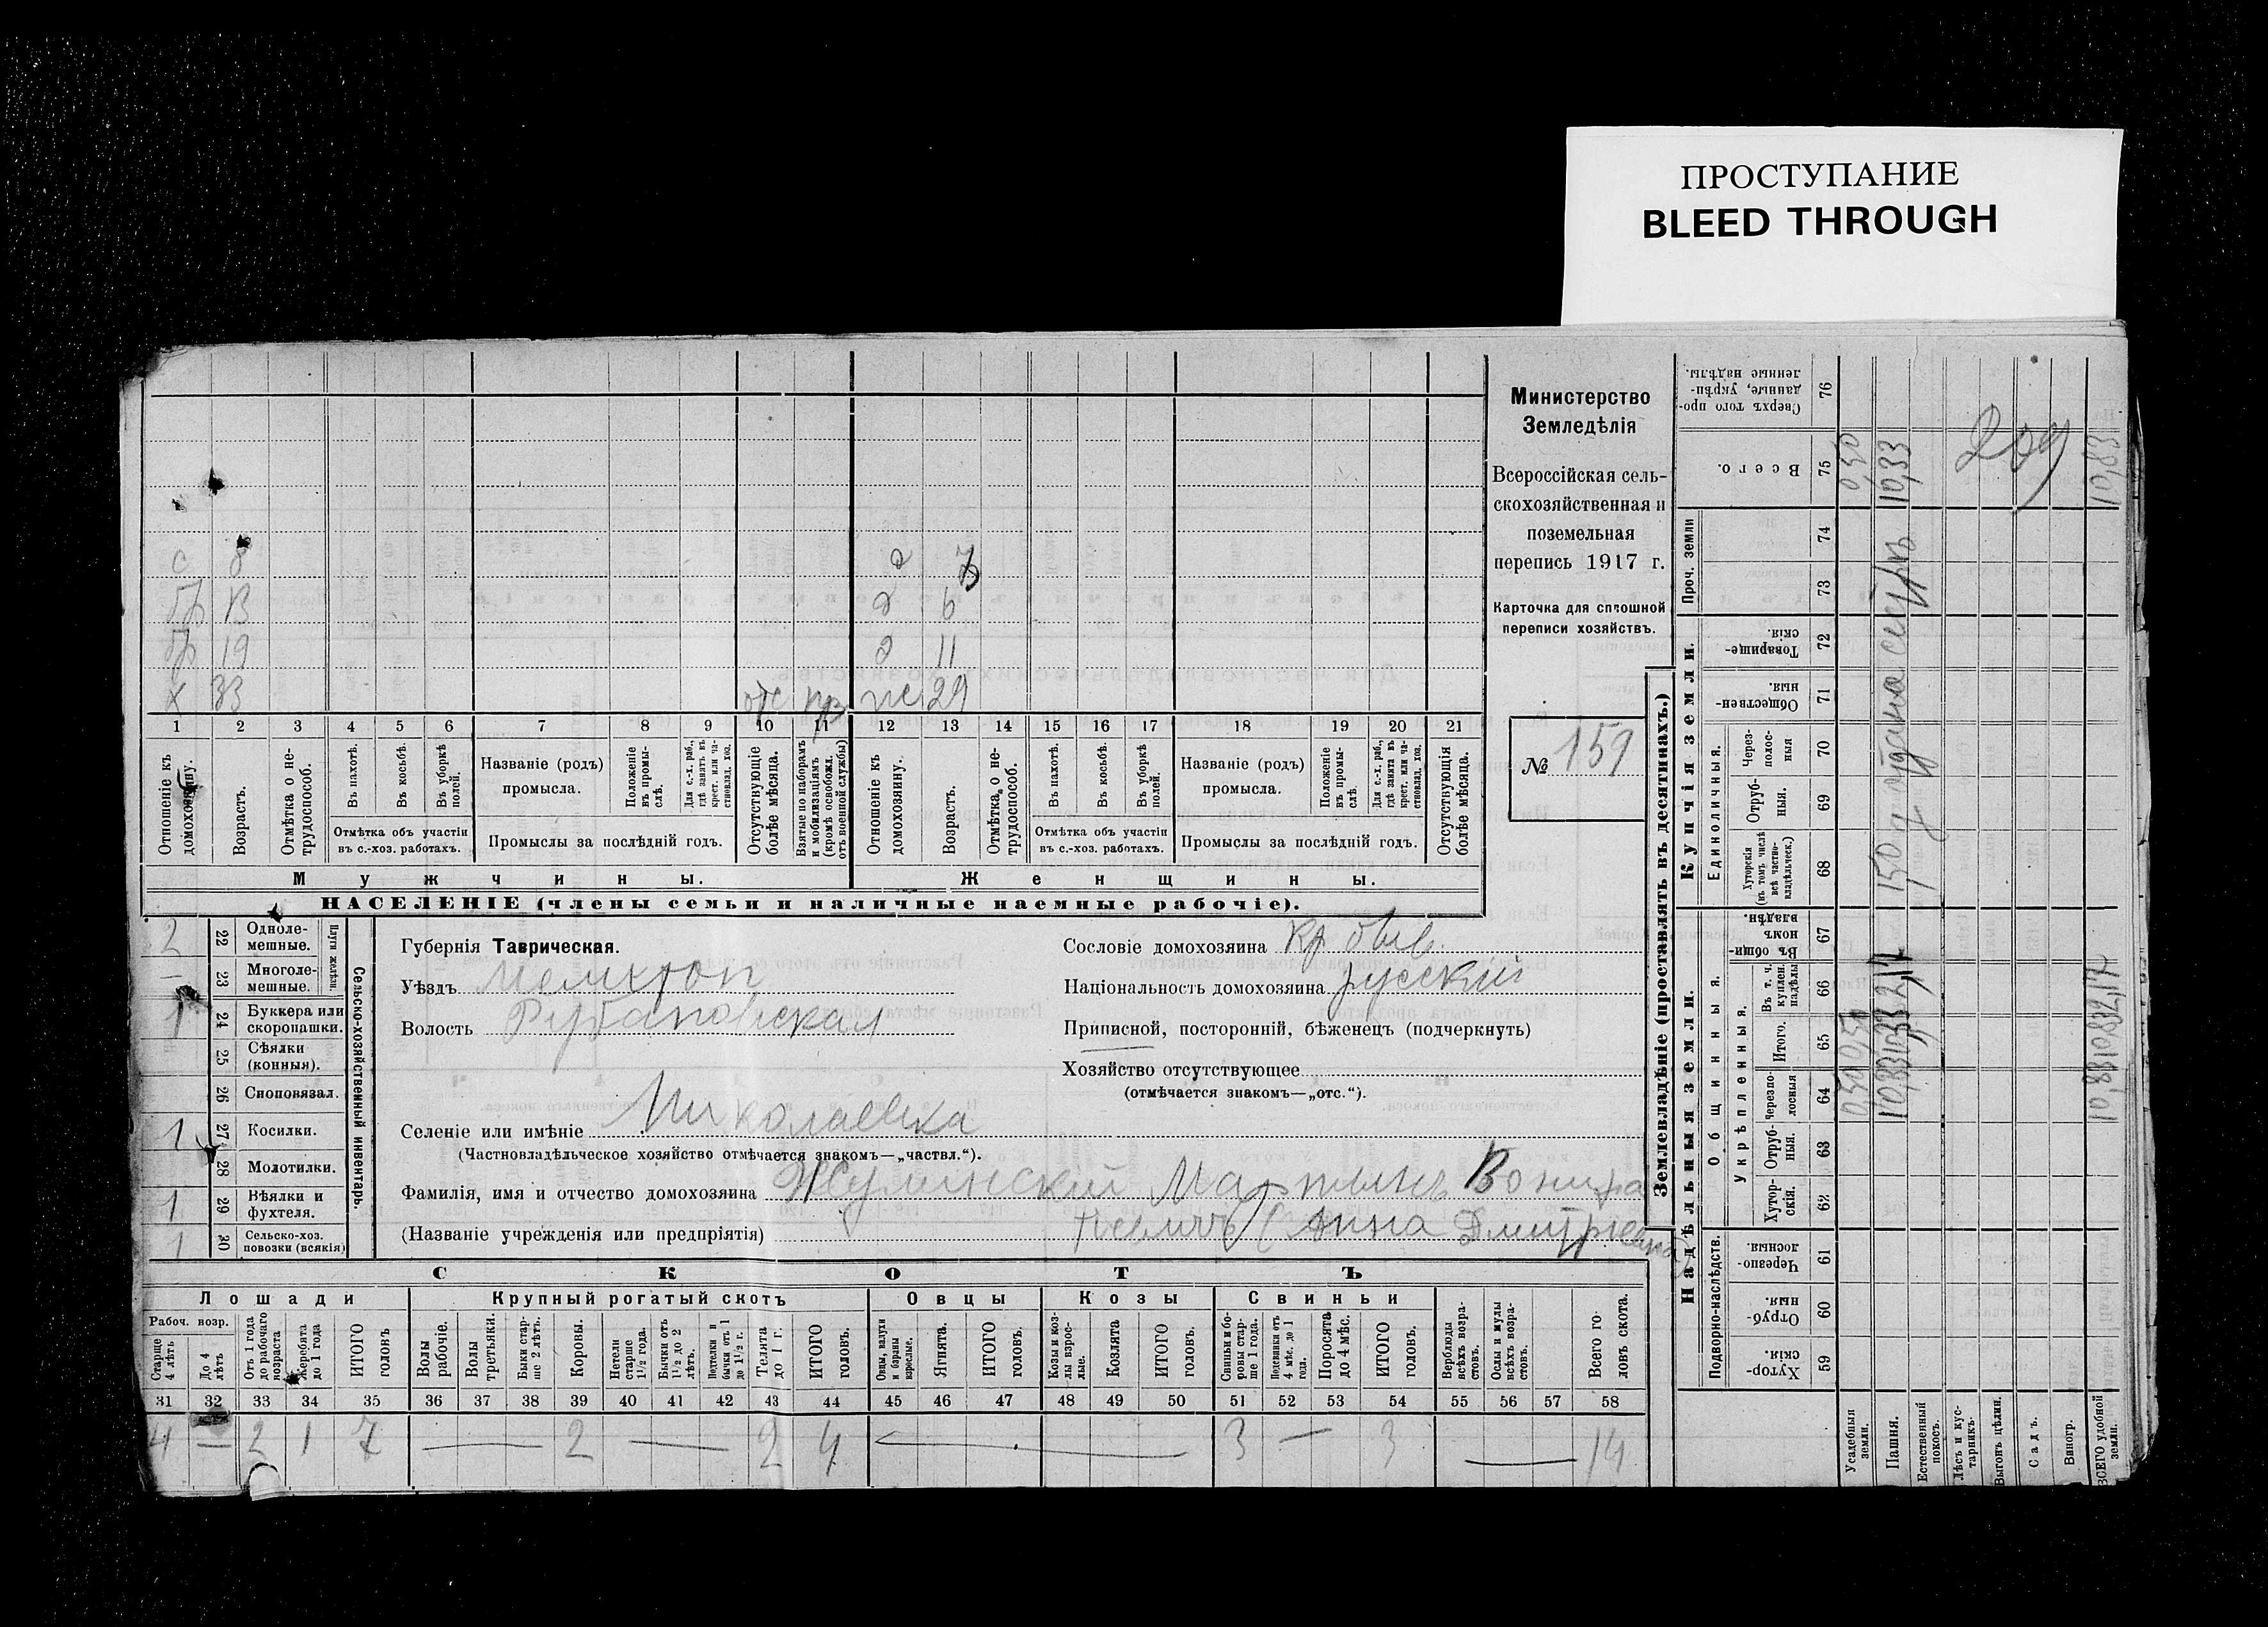 ПРОСТУПАНИЕ
BLEED THROUGH
Министерство
Земледѣлія
Всероссійская сель-
скохозяйственная и
поземельная
перепись 1917 г.
Карточка для сплошной
переписи хозяйствъ.
№ 159
с 8 д 7
бр 13 д 6
бр 19 д 11
х 33 отс ж 29
1 2 3 4 5 6 7 8 9 10 11 12 13 14 15 16 17 18 19 20 21
Отношеніе къ домохозяину.
Возрастъ.
Отмѣтка о не-трудоспособ.
Въ пахотѣ.
Въ косьбѣ.
Въ уборкѣ полей.
Отмѣтка объ участіи
въ с.-хоз. работахъ.
Названіе (родъ)
промысла.
Положеніе въ промы-слѣ.
Для с.-х. раб., гдѣ занятъ въ крест. или ча-стновлад. хоз.
Промыслы за послѣдній годъ.
Отсутствующіе болѣе мѣсяца.
Взятые по наборамъ и мобилизаціямъ (кромѣ освобожд. отъ военной службы)
Отношеніе къ домохозяину.
Возрастъ.
Отмѣтка о не-трудоспособ.
Въ пахотѣ.
Въ косьбѣ.
Въ уборкѣ полей.
Отмѣтка объ участіи
въ с.-хоз. работахъ.
Названіе (родъ)
промысла.
Положеніе въ промы-слѣ.
Для с.-х. раб., гдѣ занята въ крест. или ча-стновлад. хоз.
Промыслы за послѣдній годъ.
Отсутствующія болѣе мѣсяца.
Мужчины.
Женщины.
НАСЕЛЕНІЕ (члены семьи и наличные наемные рабочіе).
Сельско-хозяйственный инвентарь.
Плуги желѣзн.
2 22 Одноле-мешные.
— 23 Многоле-мешные.
1 24 Буккера или скоропашки.
25 Сѣялки (конныя).
26 Сноповязал.
1 27 Косилки.
28 Молотилки.
1 29 Вѣялки и фухтеля.
1 30 Сельско-хоз. повозки (всякія)
Губернія Таврическая.
Уѣздъ Мелитоп
Волость Рубановская
Селеніе или имѣніе Николаевка
(Частновладѣльческое хозяйство отмѣчается знакомъ—„частвл.“).
Фамилія, имя и отчество домохозяина Жуминскій Мартынъ Вонифа
тіевичъ (Анна Дмитріевна)
(Названіе учрежденія или предпріятія)
Сословіе домохозяина кр. быв.
Національность домохозяина русскій
Приписной, посторонній, бѣженецъ (подчеркнуть)
Хозяйство отсутствующее
(отмѣчается знакомъ—„отс.“).
СКОТЪ
Лошади
Крупный рогатый скотъ
Овцы
Козы
Свиньи
Рабоч. возр.
Старше 4 лѣтъ
До 4 лѣтъ
Отъ 1 года до рабочаго возраста
Жеребята до 1 года
ИТОГО головъ
Волы рабочіе.
Волы третьяки.
Быки стар-ше 2 лѣтъ.
Коровы.
Нетели старше 1½ года.
Бычки отъ 1½ до 2 лѣтъ.
Подтелки и бычки отъ 1 до 1½ г.
Телята до 1 г.
ИТОГО головъ.
Овцы, валухи и бараны взрослые.
Ягнята.
ИТОГО головъ.
Козы и коз-лы взрос-лые.
Козлята
ИТОГО головъ.
Свиньи и бо-ровы стар-ше 1 года.
Подсвинки отъ 4 мѣс. до 1 года.
Поросята до 4 мѣс.
ИТОГО головъ.
Верблюды всѣхъ возра-стовъ.
Ослы и мулы всѣхъ возра-стовъ.
Всего го-ловъ скота.
31 32 33 34 35 36 37 38 39 40 41 42 43 44 45 46 47 48 49 50 51 52 53 54 55 56 57 58
4 — 2 1 7 — 2 — 2 4 — 3 — 3 — 14
Землевладѣніе (проставлять въ десятинахъ.)
Надѣльныя земли.
Купчія земли.
Подворно-наслѣдств.
Общинныя.
Укрѣпленныя.
Единоличныя.
Проч. земли
59 Хутор-скія.
60 Отруб-ныя.
61 Черезпо-лосныя.
62 Хутор-скія.
63 Отруб-ныя.
64 Черезпо-лосныя
65 Итого.
66 Въ т. ч. куплен. надѣлы
67 Въ общин-номъ владѣн.
68 Хуторскія (въ томъ числѣ всѣ частно-владѣльческ.)
69 Отруб-ныя.
70 Через-полос-ныя
71 Обществен-ныя.
72 Товарище-скія.
73
74
75 Всего.
76 Сверхъ того про-данные, укрѣп-ленные надѣлы.
Усадебныя земли. 0,50 0,50 0,50
Пашня. 10,33 10,33 2,17 10,33
Естественный покосъ.
Лѣсъ и кус-тарникъ.
Выгонъ цѣлин.
Садъ.
Виногр.
ВСЕГО удобной земли. 10,83 10,83 2,17 10,83
209